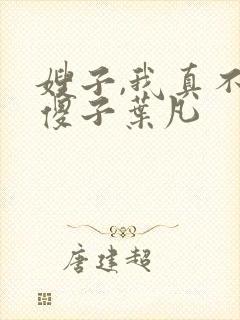 嫂子,我真不
傻子葉凡
唐建超